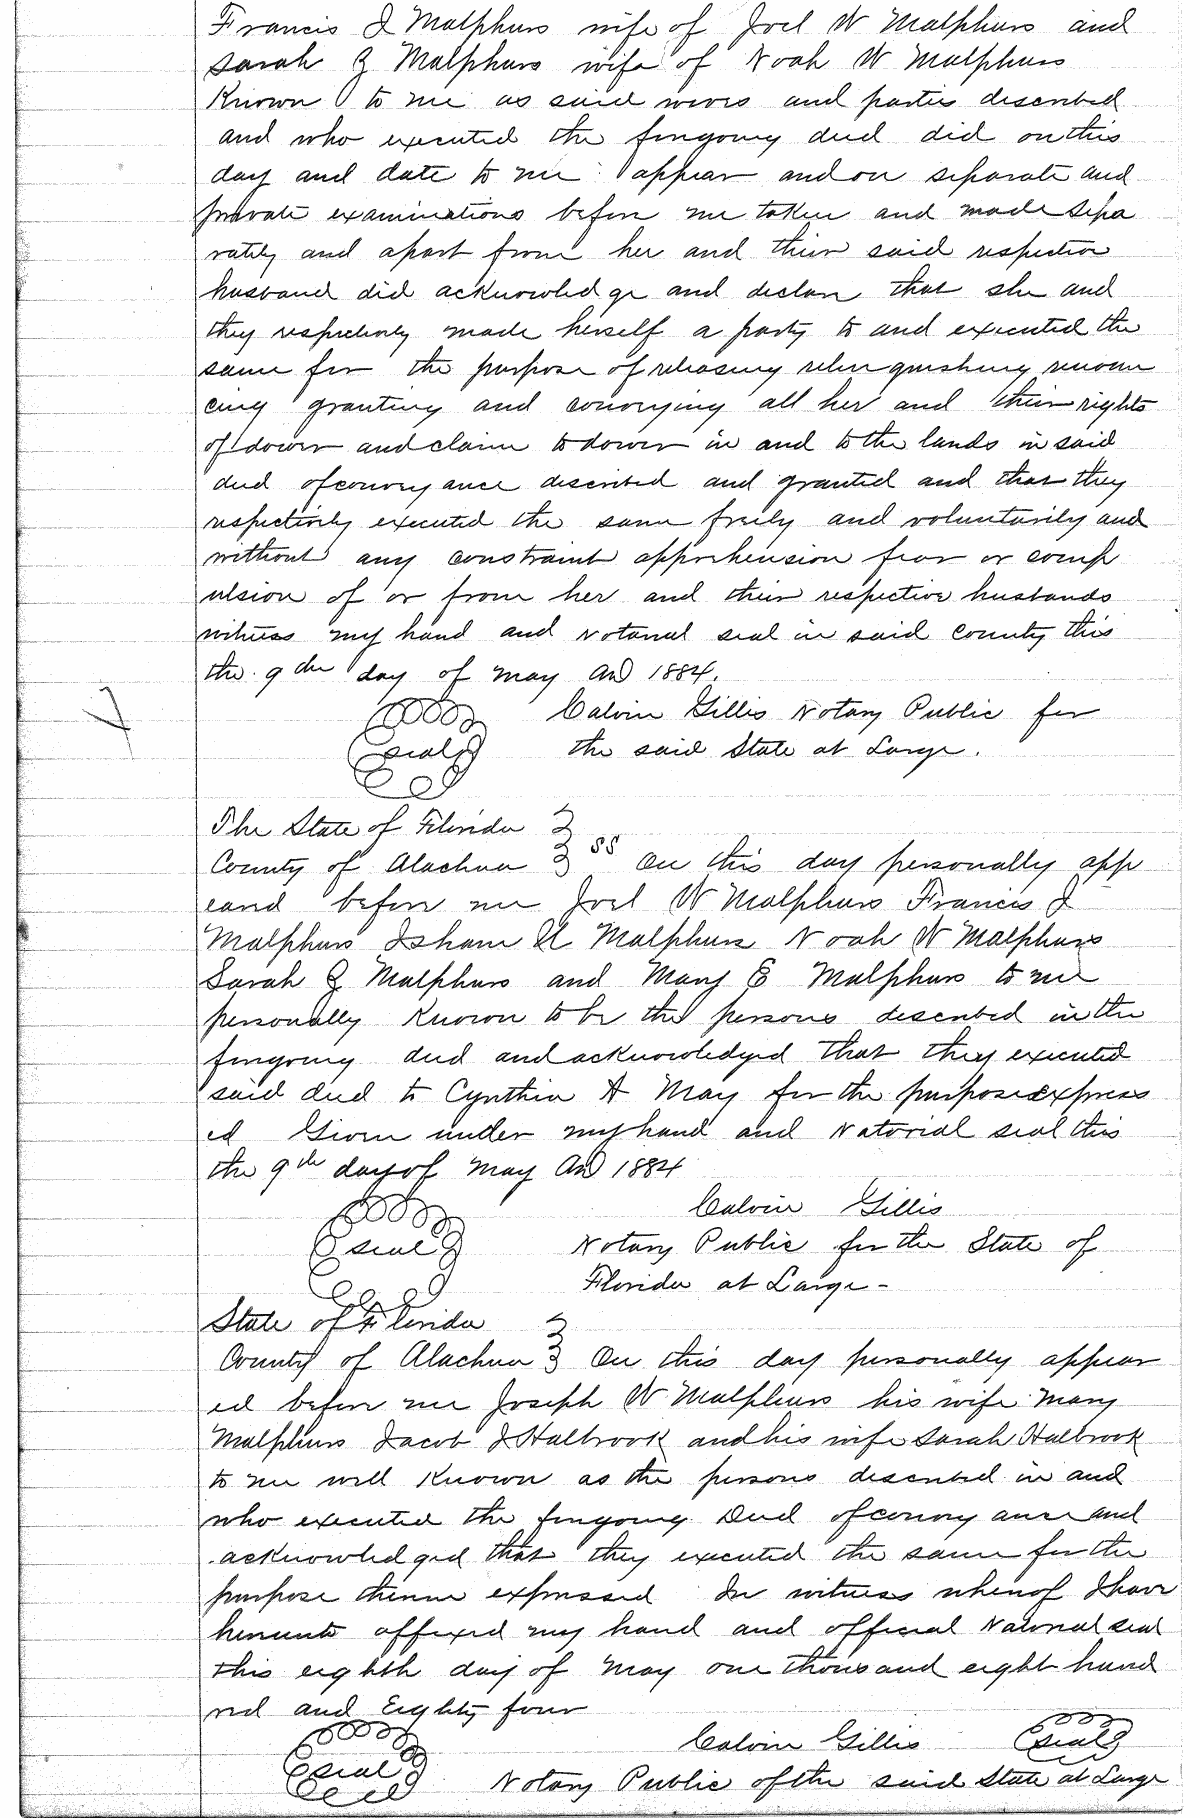 Francis J Malphurs wife of Joel W Malphurs and
Sarah J Malphurs wife of Noah W Malphurs
Known to me as said wives and parties described
and who executed the foregoing deed did on this
day and date to me appear and on separate and
private examinations before me taken and made sepa
rately and apart from her and their said respective
husband did acknowledge and declare that she and
they respectively made herself a party to and executed the
same for the purpose of releasing relinquishing renoun
cing granting and conveying all her and their rights
of dower and claim to dower in and to the lands in said
deed of conveyance described and granted and that they
respectively executed the same freely and voluntarily and
without any constraint apprehension fear or comp
ulsion of or from her and their respective husbands
witness my hand and Notarial seal in said County this
the 9th day of May AD 1884.
Calvin Gillis Notary Public for
seal the said State at Large.
The State of Florida
County of Alachua SS On this day personally app
eared before me Joel W Malphurs Francis J
Malphurs Isham H Malphurs Noah W Malphurs
Sarah J Malphurs and Mary E Malphurs to me
personally Known to be the persons described in the
foregoing deed and acknowledged that they executed
said deed to Cynthia A May for the purposes express
ed Given under my hand and Notorial seal this
the 9th day of May AD 1884
Calvin Gillis
seal Notary Public for the State of
Florida at Large -
State of Florida
County of Alachua On this day personally appear
ed before me Joseph W Malphurs his wife Mary
Malphurs Jacob J Halbrook and his wife Sarah Halbrook
to me well Known as the persons described in and
who executed the foregoing Deed of convey ance and
acknowledged that they executed the same for the
purpose therein expressed In witness whereof I have
hereunto affixed my hand and official Notorial seal
this eighth day of May one thousand eight hund
red and Eighty four
Calvin Gillis seal
seal Notary Public of the said State at Large